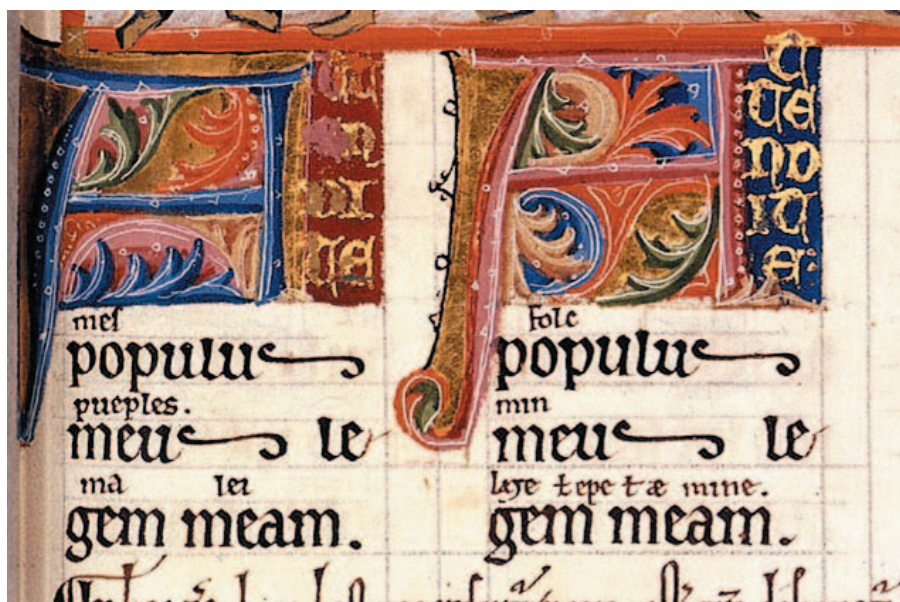 A
mes
populus
pueples.
meus le
ma lei
gem meam.
A T
TE
ND
IT
E.
Folc
populus
min
meus le
laȝe mine.
gem meam.